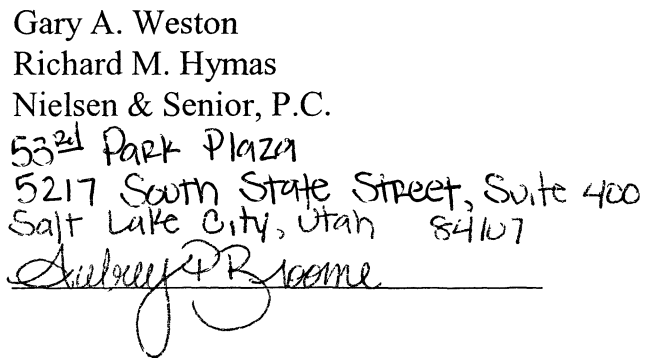 Gary A. Weston
Richard M. Hymas
Nielsen & Senior, P.C.
53rd Park Plaza
5217 South State Street, Suite 400
Salt Lake City, Utah 84107
Aubrey P Broome